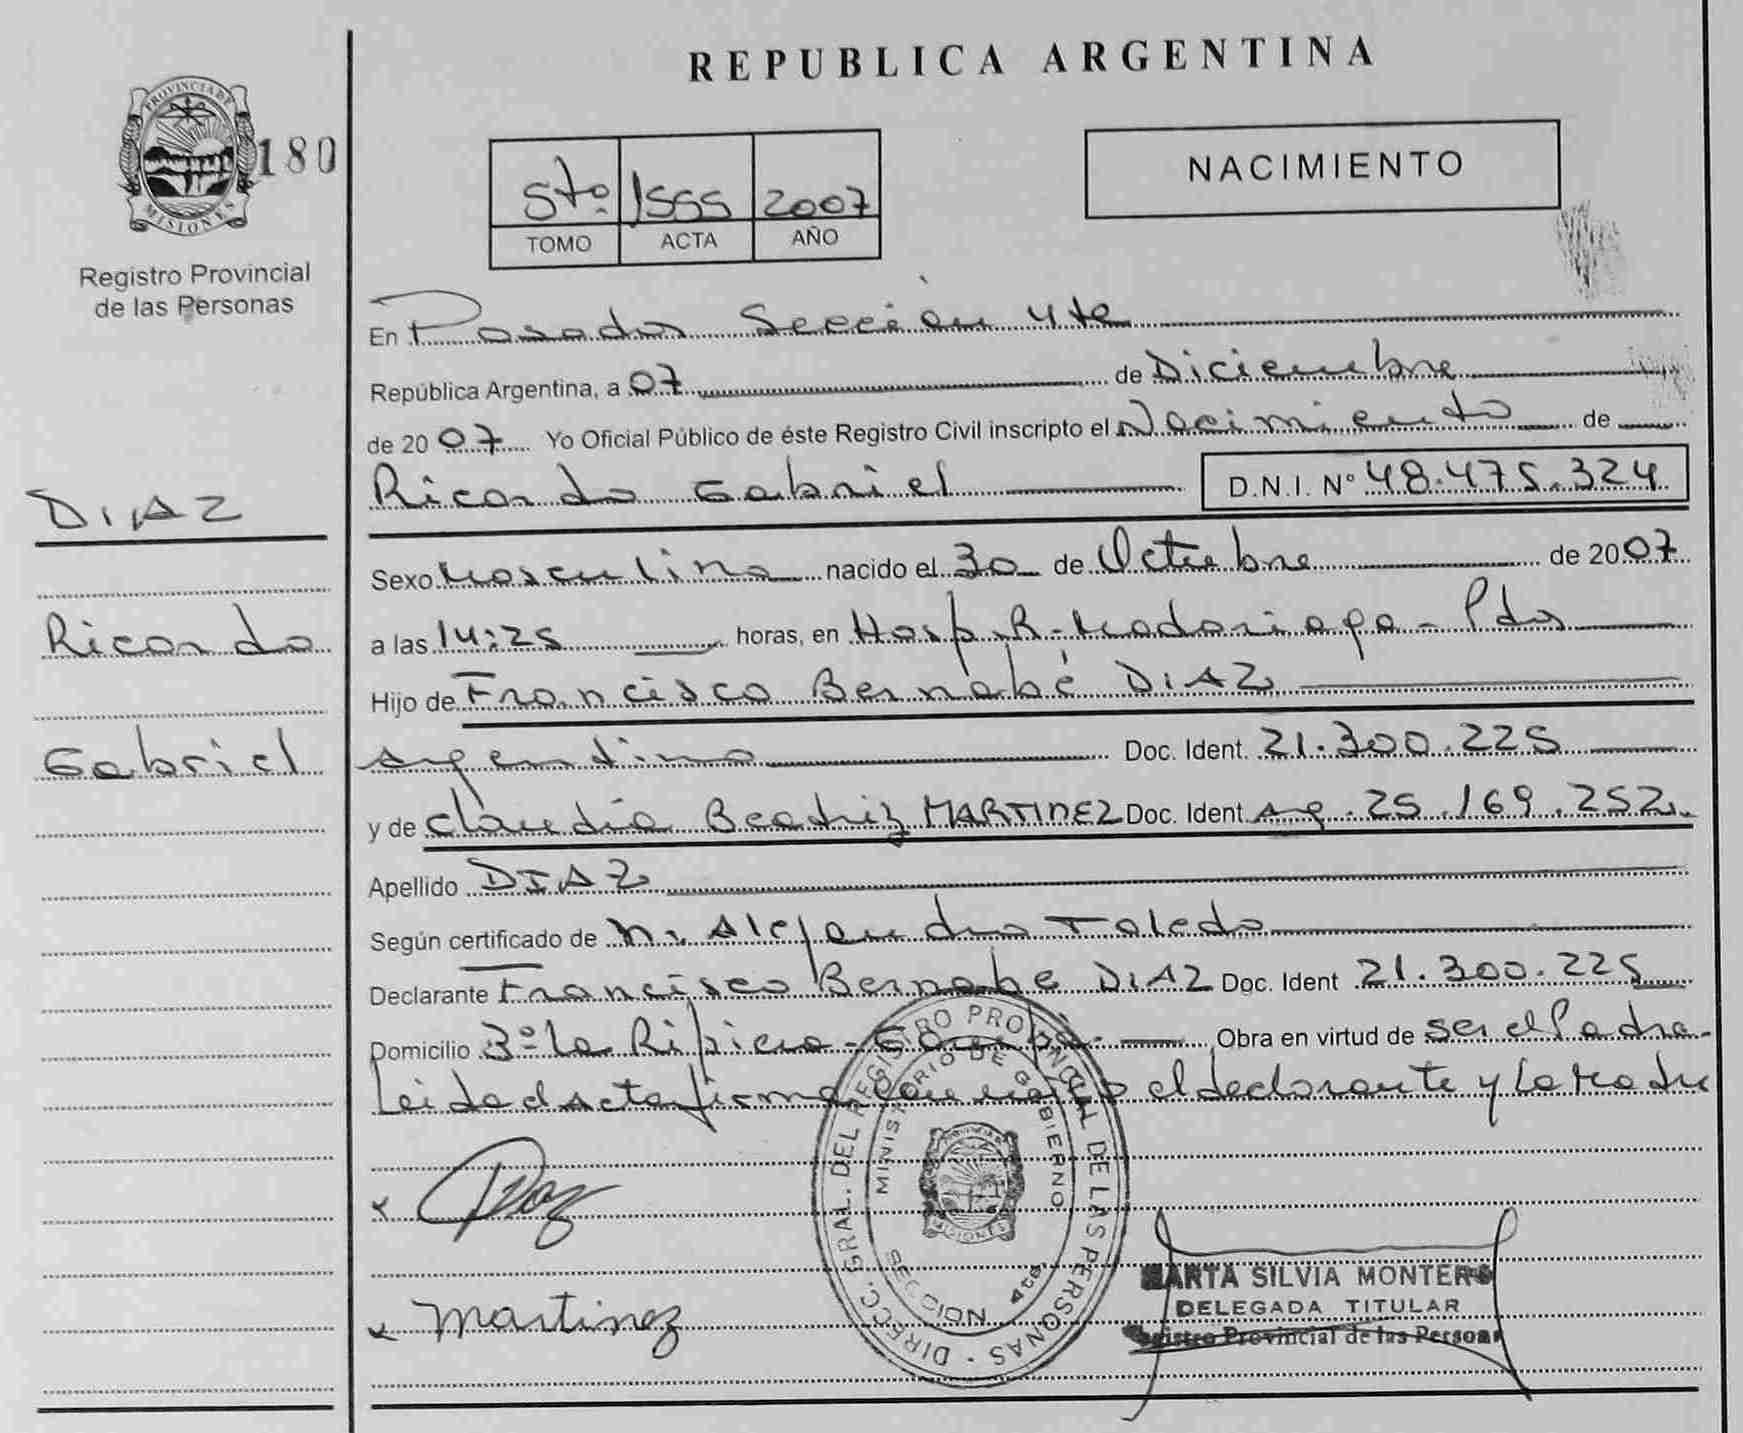 REPUBLICA ARGENTINA
PROVINCIA DE
MISIONES
180
Registro Provincial
de las Personas
5to 1555 2007
TOMO ACTA AÑO
NACIMIENTO
En Posadas Sección 4ta
República Argentina, a 07 de Diciembre
de 2007 Yo Oficial Público de éste Registro Civil inscripto el Nacimiento de
Ricardo Gabriel D.N.I. Nº 48.475.324
DIAZ
Ricardo
Gabriel
Sexo Masculino nacido el 30 de Octubre de 2007
a las 14:25 horas, en Hosp. R. Madariaga - Pdas
Hijo de Francisco Bernabé DIAZ
Argentino Doc. Ident. 21.300.225
y de Claudia Beatriz MARTINEZ Doc. Ident Arg. 25.169.252.
Apellido DIAZ
Según certificado de M. Alejandra Toledo
Declarante Francisco Bernabe DIAZ Doc. Ident 21.300.225
Domicilio 3º la Garupá. Obra en virtud de ser el Padre.
Leida el acta firma conmigo el declarante y la Madre
Diaz
Martinez
DIRECC. GRAL. DEL REGISTRO PROVINCIAL DE LAS PERSONAS
MINISTERIO DE GOBIERNO
SECCION 4ta
MARTA SILVIA MONTERO
DELEGADA TITULAR
Registro Provincial de las Personas